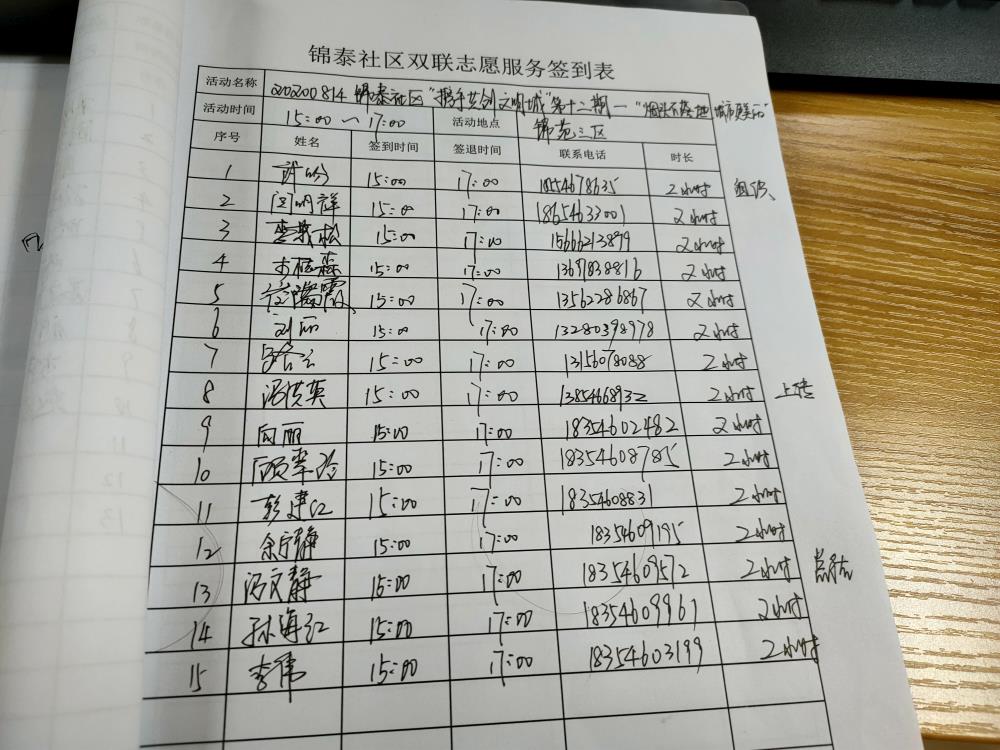 锦泰社区双联志愿服务签到表
活动名称 20200814 锦泰社区"携手共创文明城"第十二期—"烟头不落地 城市更美丽"
活动时间 15:00~17:00 活动地点 锦苑三区
序号 姓名 签到时间 签退时间 联系电话 时长
1 许 15:00 17:00 1854678635 2小时
2 闫明祥 15:00 17:00 18654633001 2小时
3 李 松 15:00 17:00 15666213899 2小时
4 森 15:00 17:00 1367838816 2小时
5 霞 15:00 17:00 13562286867 2小时
6 刘丽 15:00 17:00 13280398978 2小时
7 15:00 17:00 13156078088 2小时
8 冯洪英 15:00 17:00 13854668932 2小时 上传
9 向丽 15:00 17:00 18354602482 2小时
10 顾翠玲 15:00 17:00 18354608785 2小时
11 彭建红 15:00 17:00 18354608831 2小时
12 余宁静 15:00 17:00 18354609195 2小时
13 冯文静 15:00 17:00 18354609572 2小时
14 孙海红 15:00 17:00 18354609961 2小时
15 李伟 15:00 17:00 18354603199 2小时